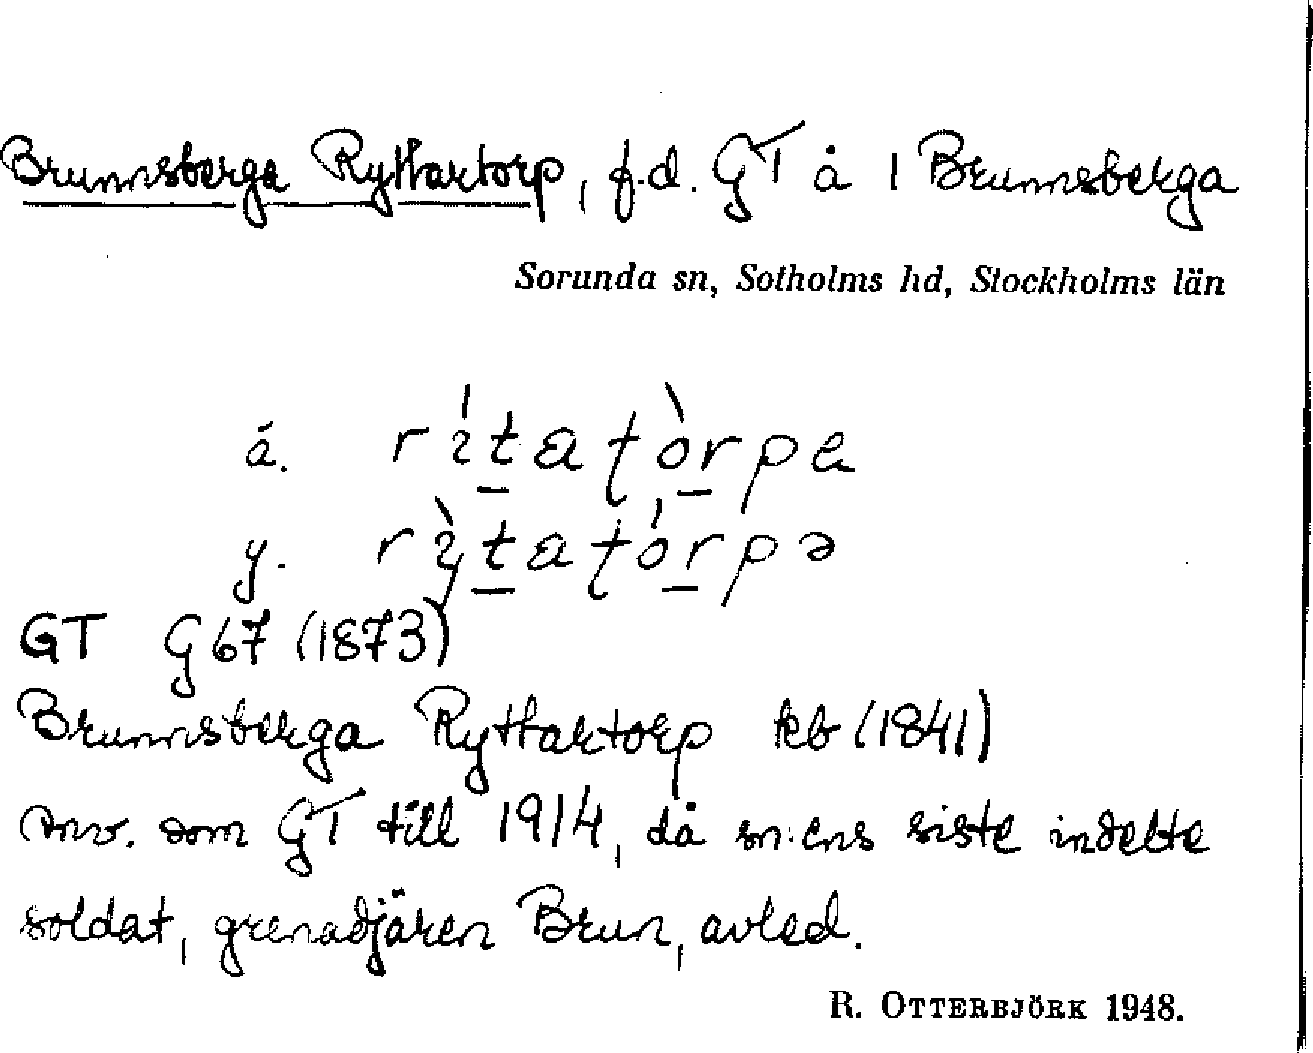 Brunnsberga Ryttartorp, f.d. GT å 1 Brunnsberga
Sorunda sn, Sotholms hd, Stockholms län
á. rı́tatòrpa
y. rỳtatórpə
GT G67 (1873)
Brunnsberga Ryttartorp kb (1841)
anv. som GT till 1914, då sn:ens siste indelte
soldat, grenadjären Brun, avled.
R. OTTERBJÖRK 1948.